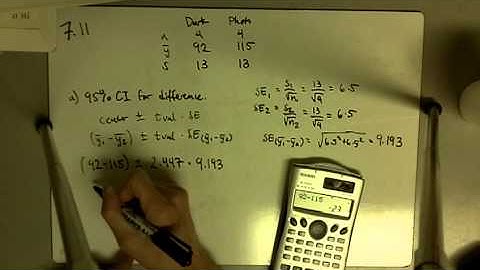 7.11
Dark Photo
n 4 4
ȳ 92 115
s 13 13
a) 95% CI for difference.
center ± tval · SE
(ȳ₁-ȳ₂) ± tval · SE(ȳ₁-ȳ₂)
(92-115) ± 2.447 · 9.193
SE₁ = s₁/√n₁ = 13/√4 = 6.5
SE₂ = s₂/√n₂ = 13/√4 = 6.5
SE(ȳ₁-ȳ₂) = √6.5²+6.5² = 9.193
92-115
-23